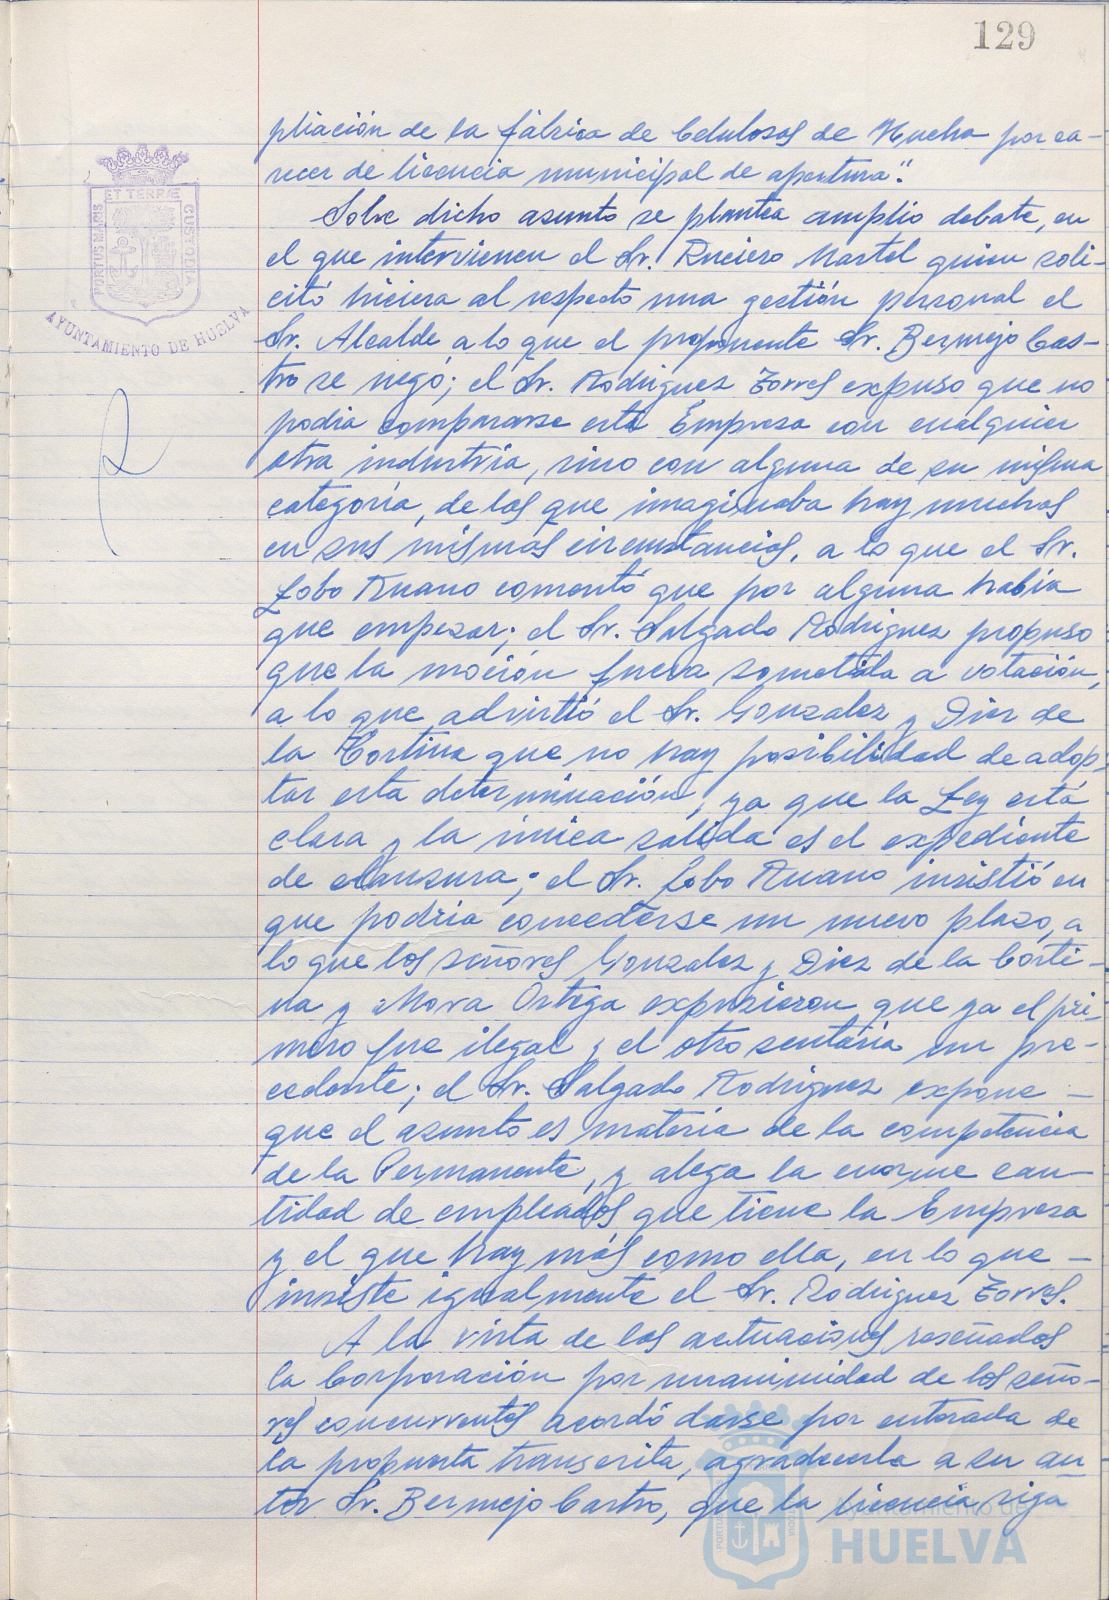 129
pliación de la fábrica de Celulosas de Huelva por ca-
recer de licencia municipal de apertura".
Sobre dicho asunto se plantea amplio debate, en
el que intervienen el Sr. Ruciero Martel quien soli-
citó hiciera al respecto una gestión personal el
Sr. Alcalde a lo que el proponente Sr. Bermejo Cas-
tro se negó; el Sr. Rodriguez Torres expuso que no
podia compararse esta Empresa con cualquier
otra industria, sino con alguna de su misma
categoría, de las que imaginaba hay muchas
en sus mismas circunstancias, a lo que el Sr.
Lobo Ruano comentó que por alguna habia
que empezar; el Sr. Salgado Rodriguez propuso
que la moción fuera sometida a votación,
a lo que advirtió el Sr. Gonzalez y Diez de
la Cortina que no hay posibilidad de adop-
tar esta determinación, ya que la Ley está
clara y la única salida es el expediente
de clausura; el Sr. Lobo Ruano insistió en
que podría concederse un nuevo plazo, a
lo que los señores Gonzalez y Diez de la Corti-
na y Mora Ortega expusieron que ya el pri-
mero fue ilegal y el otro sentaria un pre-
cedente; el Sr. Salgado Rodriguez expone -
que el asunto es materia de la competencia
de la Permanente, y alega la enorme can-
tidad de empleados que tiene la Empresa
y el que hay más como ella, en lo que -
insiste igualmente el Sr. Rodriguez Torres.
A la vista de las actuaciones reseñadas
la Corporación por unanimidad de los seño-
res concurrentes acordó darse por enterada de
la propuesta transcrita, agradecerla a su au-
tor Sr. Bermejo Castro, que la licencia siga
PORTUS MARIS
ET TERRÆ
CUSTODIA
AYUNTAMIENTO DE HUELVA
Ayuntamiento de
HUELVA